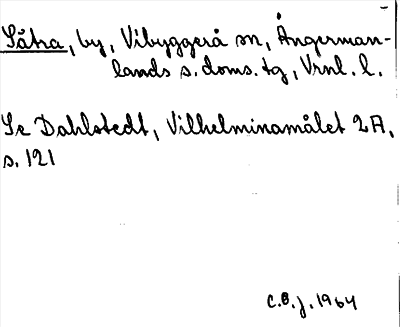 Sätra, by, Vibyggerå sn, Ångerman-
lands s. doms. tg, Vrnl. l.
Se Dahlstedt, Vilhelminamålet 2A,
s. 121
C.B.J. 1964